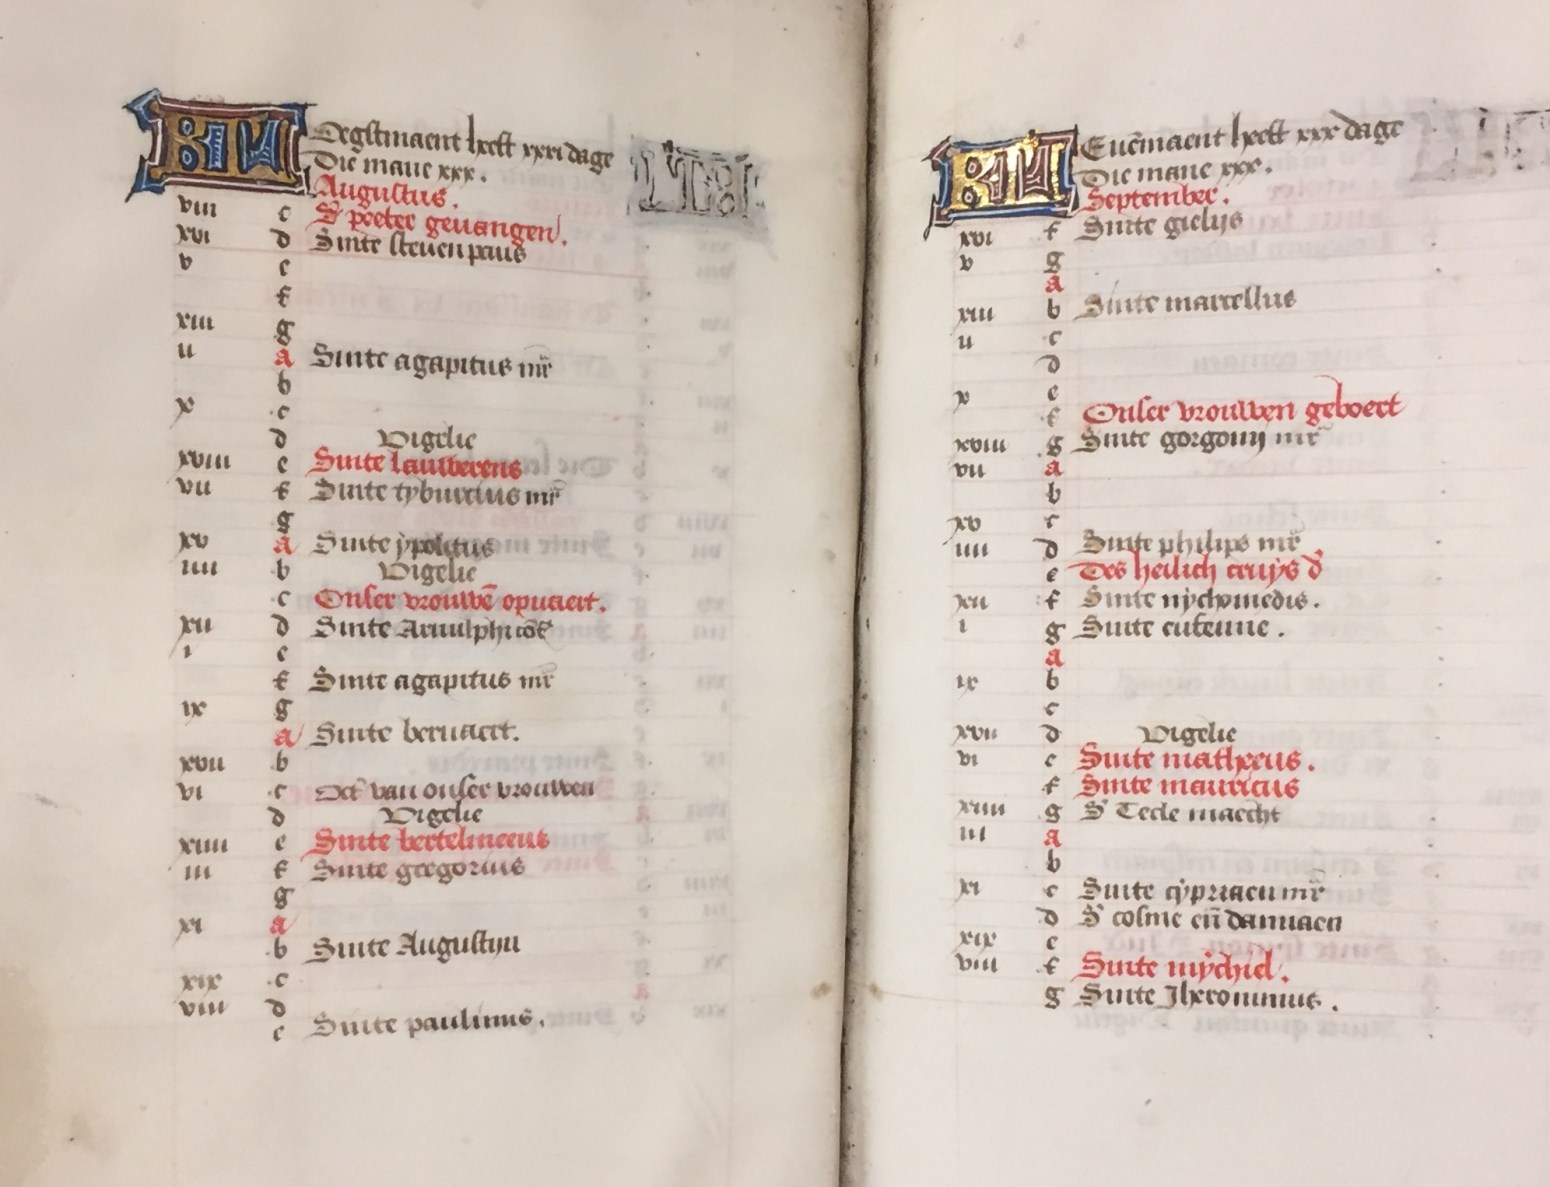 KL Oegstmaent heeft xxxi dage
Die mane xxx.
Augustus.
viii c S' peeter geuangen.
xvi d Sinte steuen paus
v e
f
xiii g
ii a Sinte agapitus mr̄
b
x c
d Vigelie
xviii e Sinte lauwerens
vii f Sinte tyburcius mr̄
g
xv a Sinte ypolitus
iiii b Vigelie
c Onser vrouwē opuaert.
xii d Sinte Arnulphi cōf
i e
f Sinte agapitus mr̄
ix g
a Sinte bernaert.
xvii b
vi c Oct' van onser vrouwen
d Vigelie
xiiii e Sinte bertelmeeus
iii f Sinte gregorius
g
xi a
b Sinte Augustyn
xix c
viii d
e Sinte paulinus.
KL Euēmaent heeft xxx dage
Die mane xxx.
September.
xvi f Sinte gielijs
v g
a
xiii b Sinte marcellus
ii c
d
x e
f Onser vrouwen geboert
xviii g Sinte gorgonij mr̄
vii a
b
xv c
iiii d Sinte philips mr̄
e Des heilich cruijs d'
xii f Sinte nychomedis.
i g Sinte eufemie.
a
ix b
c
xvii d Vigelie
vi e Sinte matheeus.
f Sinte mauricius
xiiii g S' Tecle maecht
iii a
b
xi c Sinte cypriaen mr̄
d S' cosme eñ damiaen
xix e
viii f Sinte mychiel.
g Sinte Jheronimus.